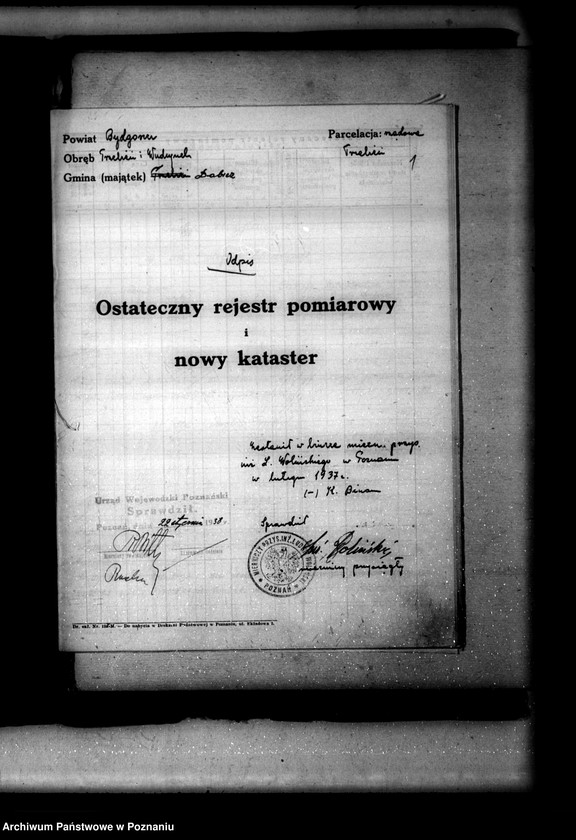 Powiat Bydgoszcz
Obręb Trzebień i Wudzynek
Gmina (majątek) Dobrcz
Parcelacja: rządowa
Trzebień
1
Odpis
Ostateczny rejestr pomiarowy
i
nowy kataster
Zestawił w biurze miern. przys.
inż. L. Wolińskiego w Poznaniu
w lutym 1937 r.
(-) K.
Urząd Wojewódzki Poznański
Sprawdził.
Poznań, dnia 22 stycznia 1938 r.
Sprawdził
mierniczy przysięgły
MIERNICZY PRZYSIĘGŁY
POZNAŃ
Archiwum Państwowe w Poznaniu